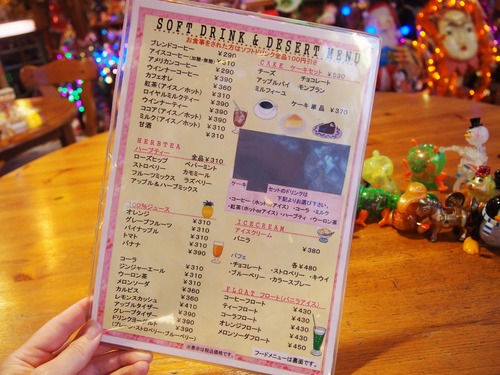 SOFT DRINK & DESERT MENU
お食事をされた方はソフトドリンク全品100円引き
ブレンドコーヒー ¥290
アイスコーヒー(加糖・無糖) ¥310
アメリカンコーヒー ¥290
ウインナーコーヒー ¥390
カフェオレ ¥360
紅茶(アイス/ホット) ¥310
ロイヤルミルクティー ¥390
ウインナーティー ¥390
ココア(アイス/ホット)
ミルク(アイス/ホット) ¥310
甘酒 ¥310
HERBTEA
ハーブティー 全品¥310
ローズヒップ ペパーミント
ストロベリー カモミール
フルーツミックス ラズベリー
アップル&ハーブミックス
100%ジュース
オレンジ ¥310
グレープフルーツ ¥310
パイナップル ¥310
トマト ¥310
バナナ ¥390
コーラ ¥310
ジンジャーエール ¥310
ウーロン茶 ¥310
メロンソーダ ¥310
カルピス ¥360
レモンスカッシュ ¥410
アップルタイザー
グレープタイザー
ドリンクヨーグルト ¥390
(プレーン・ストロベリー・ブルーベリー)
※表示は税込価格です。
CAKE ケーキセット ¥530
チーズ チョコレート
アップルパイ モンブラン
ミルフィーユ
ケーキ単品 ¥370
ケーキ セットのドリンクは
下記よりお選び下さい。
・コーヒー(ホットorアイス)・コーラ ・ミルク
・紅茶(ホットorアイス)・ハーブティ ・ウーロン茶
ICECREAM
アイスクリーム
バニラ ¥380
パフェ 各¥480
・チョコレート ・ストロベリー ・キウイ
・ブルーベリー ・カラースプレー
FLOAT フロート(バニラアイス)
コーヒーフロート ¥430
ティーフロート ¥430
コーラフロート ¥430
オレンジフロート ¥430
メロンソーダフロート ¥450
フードメニューは裏面です。